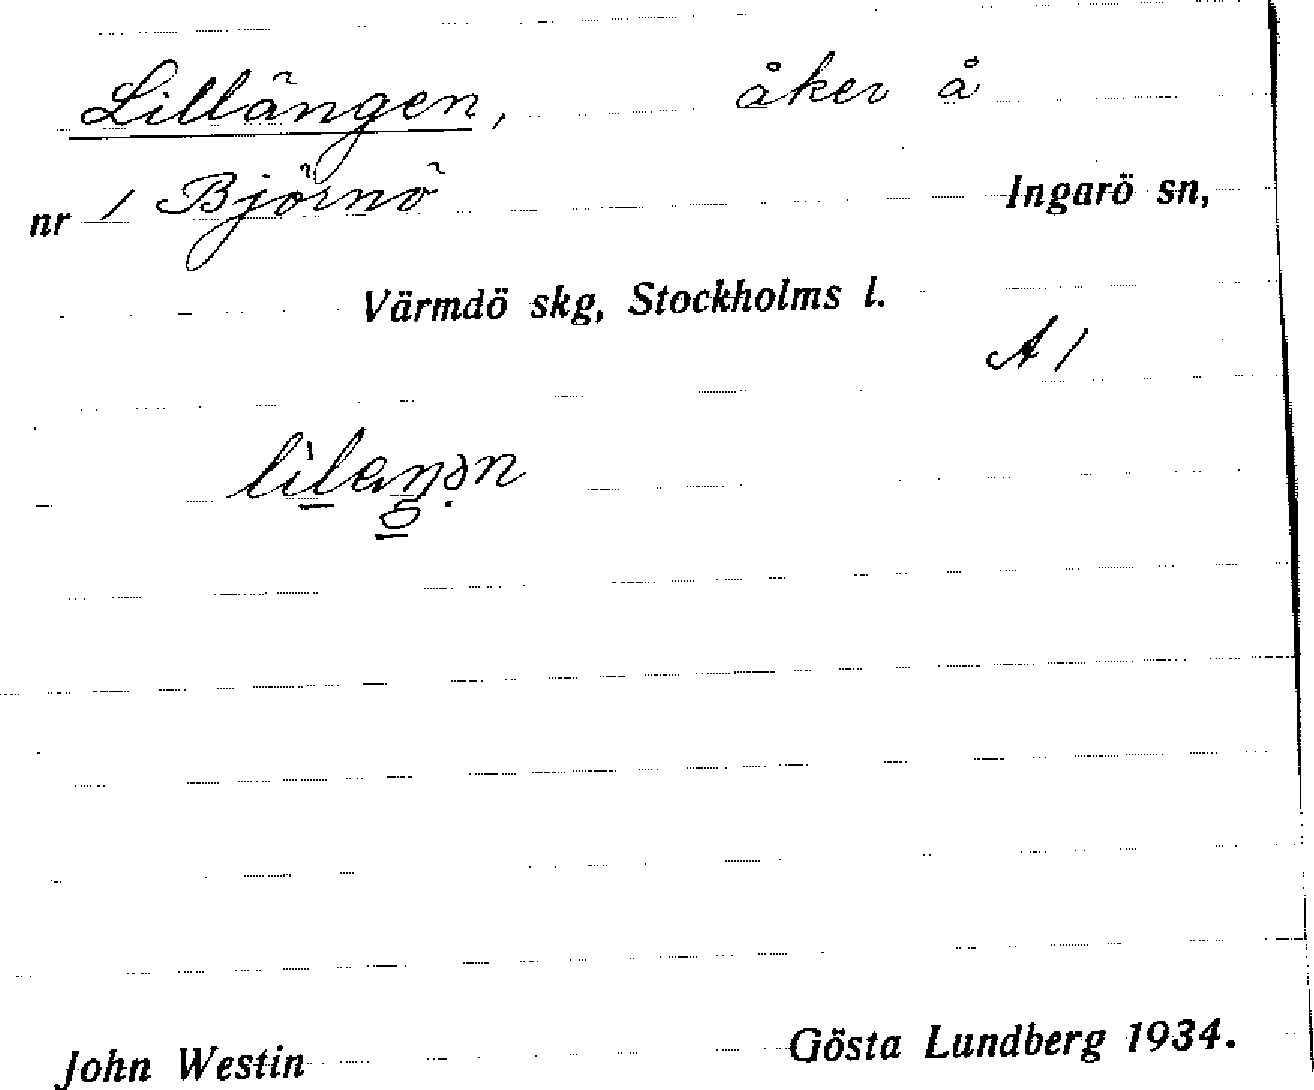 Lillängen, åker å
nr 1 Björnö Ingarö sn,
Värmdö skg, Stockholms l.
A 1
John Westin Gösta Lundberg 1934.